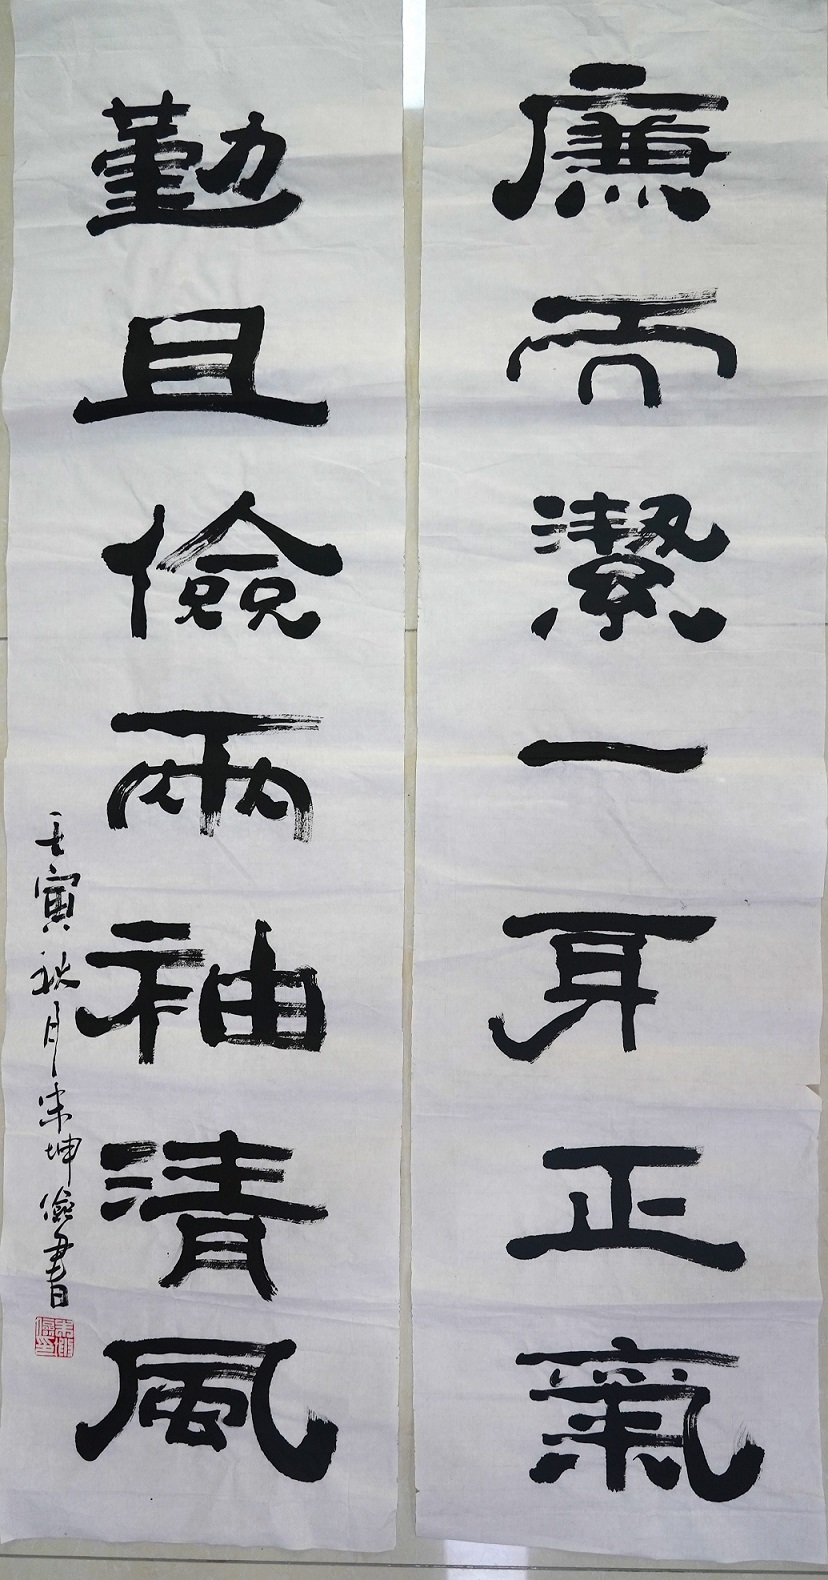 廉而潔一耳正氣
勤且儉兩袖清風
壬寅秋月宋坤儉書